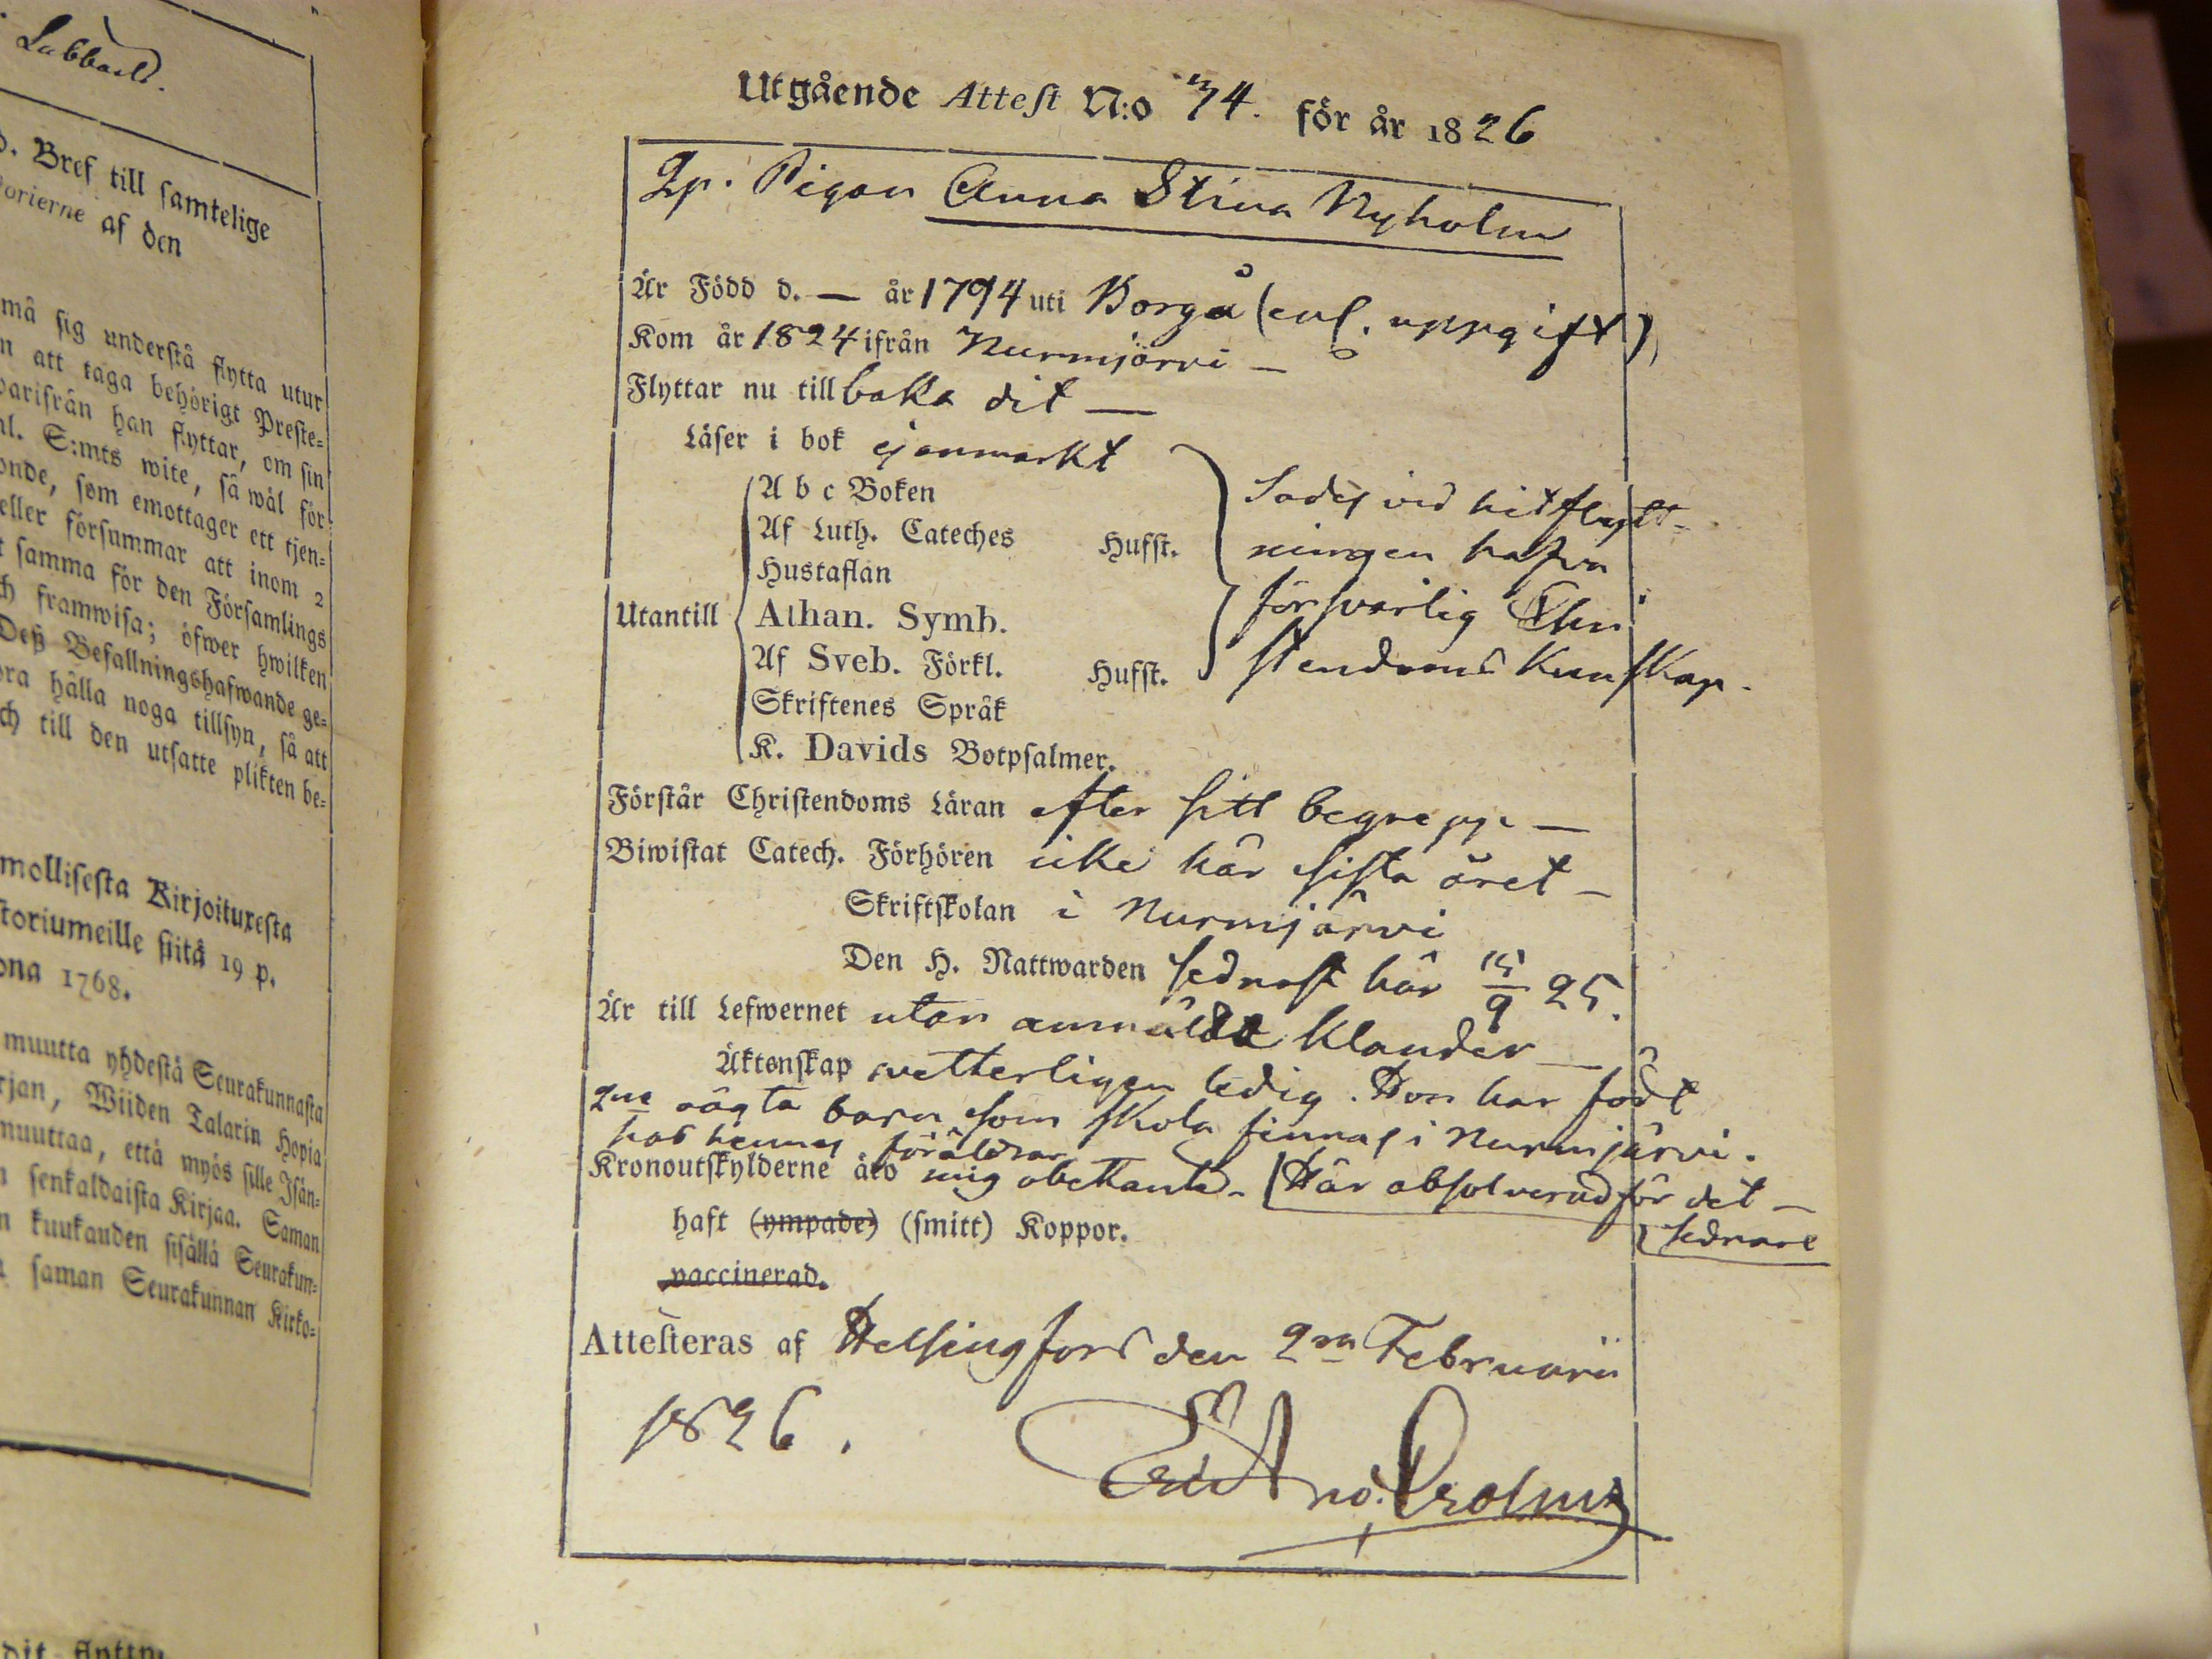 Labbart.
d. Bref till samtelige
orierne af den
må sig understå flytta utur
n att taga behörigt Preste-
varifrån han flyttar, om sin
hl. S:mts wite, så wäl för
onde, som emottager ett tjen-
eller försummar att inom 2
t samma för den Församlings
ch framwisa; öfwer hwilken
Deß Befallningshafwande ge-
ora hålla noga tillsyn, så att
ch till den utsatte plikten be-
mollisesta Kirjoituxesta
storiumeille siitä 19 p.
ona 1768.
muutta yhdestä Seurakunnasta
rjan, Wiiden Talarin Hopia
muuttaa, että myös sille Isän-
n senkaldaista Kirjaa. Saman
n kuukauden sisällä Seurakun-
saman Seurakunnan Kirko-
Utgående Attest N:o 74. för år 1826
Qp. Pigan Anna Stina Nyholm
Är Född d. — år 1794 uti Borgå (enl. uppgift),
Kom år 1824 ifrån Nurmijärvi —
Flyttar nu till baka dit —
Läser i bok ej anmärkt
A b c Boken
Af Luth. Cateches Hufst.
Hustaflan
Utantill Athan. Symb.
Af Sveb. Förkl. Hufst.
Skriftenes Språk
K. Davids Botpsalmer.
Sades vid hitflytt-
ningen hafva
försvarlig Chri
stendoms Kunskap.
Förstår Christendoms Läran efter sitt begrepp —
Biwistat Catech. Förhören icke här sista året —
Skriftskolan i Nurmijärvi
Den H. Nattwarden sednast här 15/9 25.
Är till Lefwernet utan anmäldt klander —
Äktenskap vetterligen ledig. Hon har födt
2ne oägta barn som skola finnas i Nurmijärvi.
hos hennes föräldrar
Kronoutskylderne äro mig obekante. Här absolverad för det —
sednare
haft (ympade) (smitt) Koppor.
vaccinerad.
Attesteras af Helsingfors den 2n Februarii
1826.